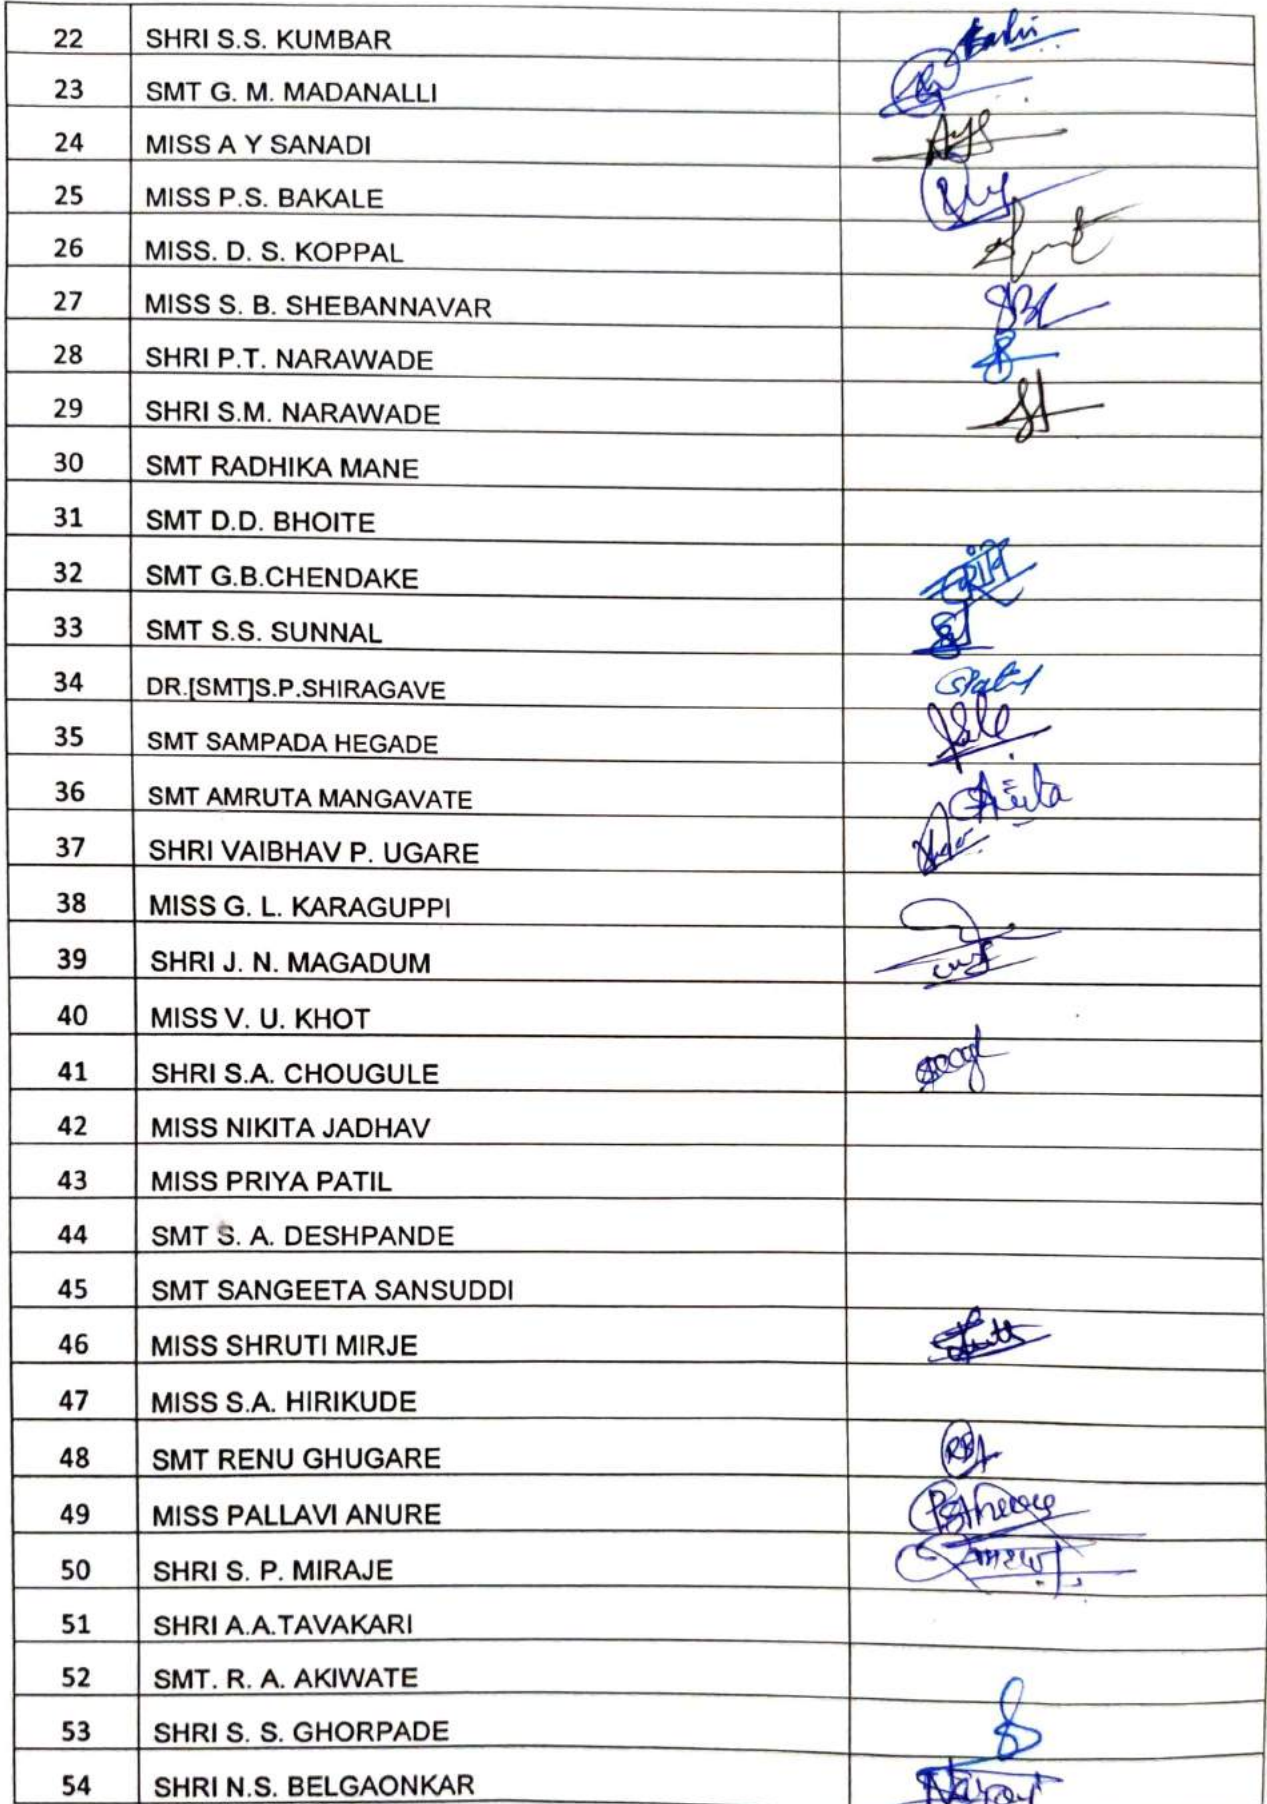 22 SHRI S.S. KUMBAR
23 SMT G. M. MADANALLI
24 MISS A Y SANADI
25 MISS P.S. BAKALE
26 MISS. D. S. KOPPAL
27 MISS S. B. SHEBANNAVAR
28 SHRI P.T. NARAWADE
29 SHRI S.M. NARAWADE
30 SMT RADHIKA MANE
31 SMT D.D. BHOITE
32 SMT G.B.CHENDAKE
33 SMT S.S. SUNNAL
34 DR.[SMT]S.P.SHIRAGAVE
35 SMT SAMPADA HEGADE
36 SMT AMRUTA MANGAVATE
37 SHRI VAIBHAV P. UGARE
38 MISS G. L. KARAGUPPI
39 SHRI J. N. MAGADUM
40 MISS V. U. KHOT
41 SHRI S.A. CHOUGULE
42 MISS NIKITA JADHAV
43 MISS PRIYA PATIL
44 SMT S. A. DESHPANDE
45 SMT SANGEETA SANSUDDI
46 MISS SHRUTI MIRJE
47 MISS S.A. HIRIKUDE
48 SMT RENU GHUGARE
49 MISS PALLAVI ANURE
50 SHRI S. P. MIRAJE
51 SHRI A.A.TAVAKARI
52 SMT. R. A. AKIWATE
53 SHRI S. S. GHORPADE
54 SHRI N.S. BELGAONKAR